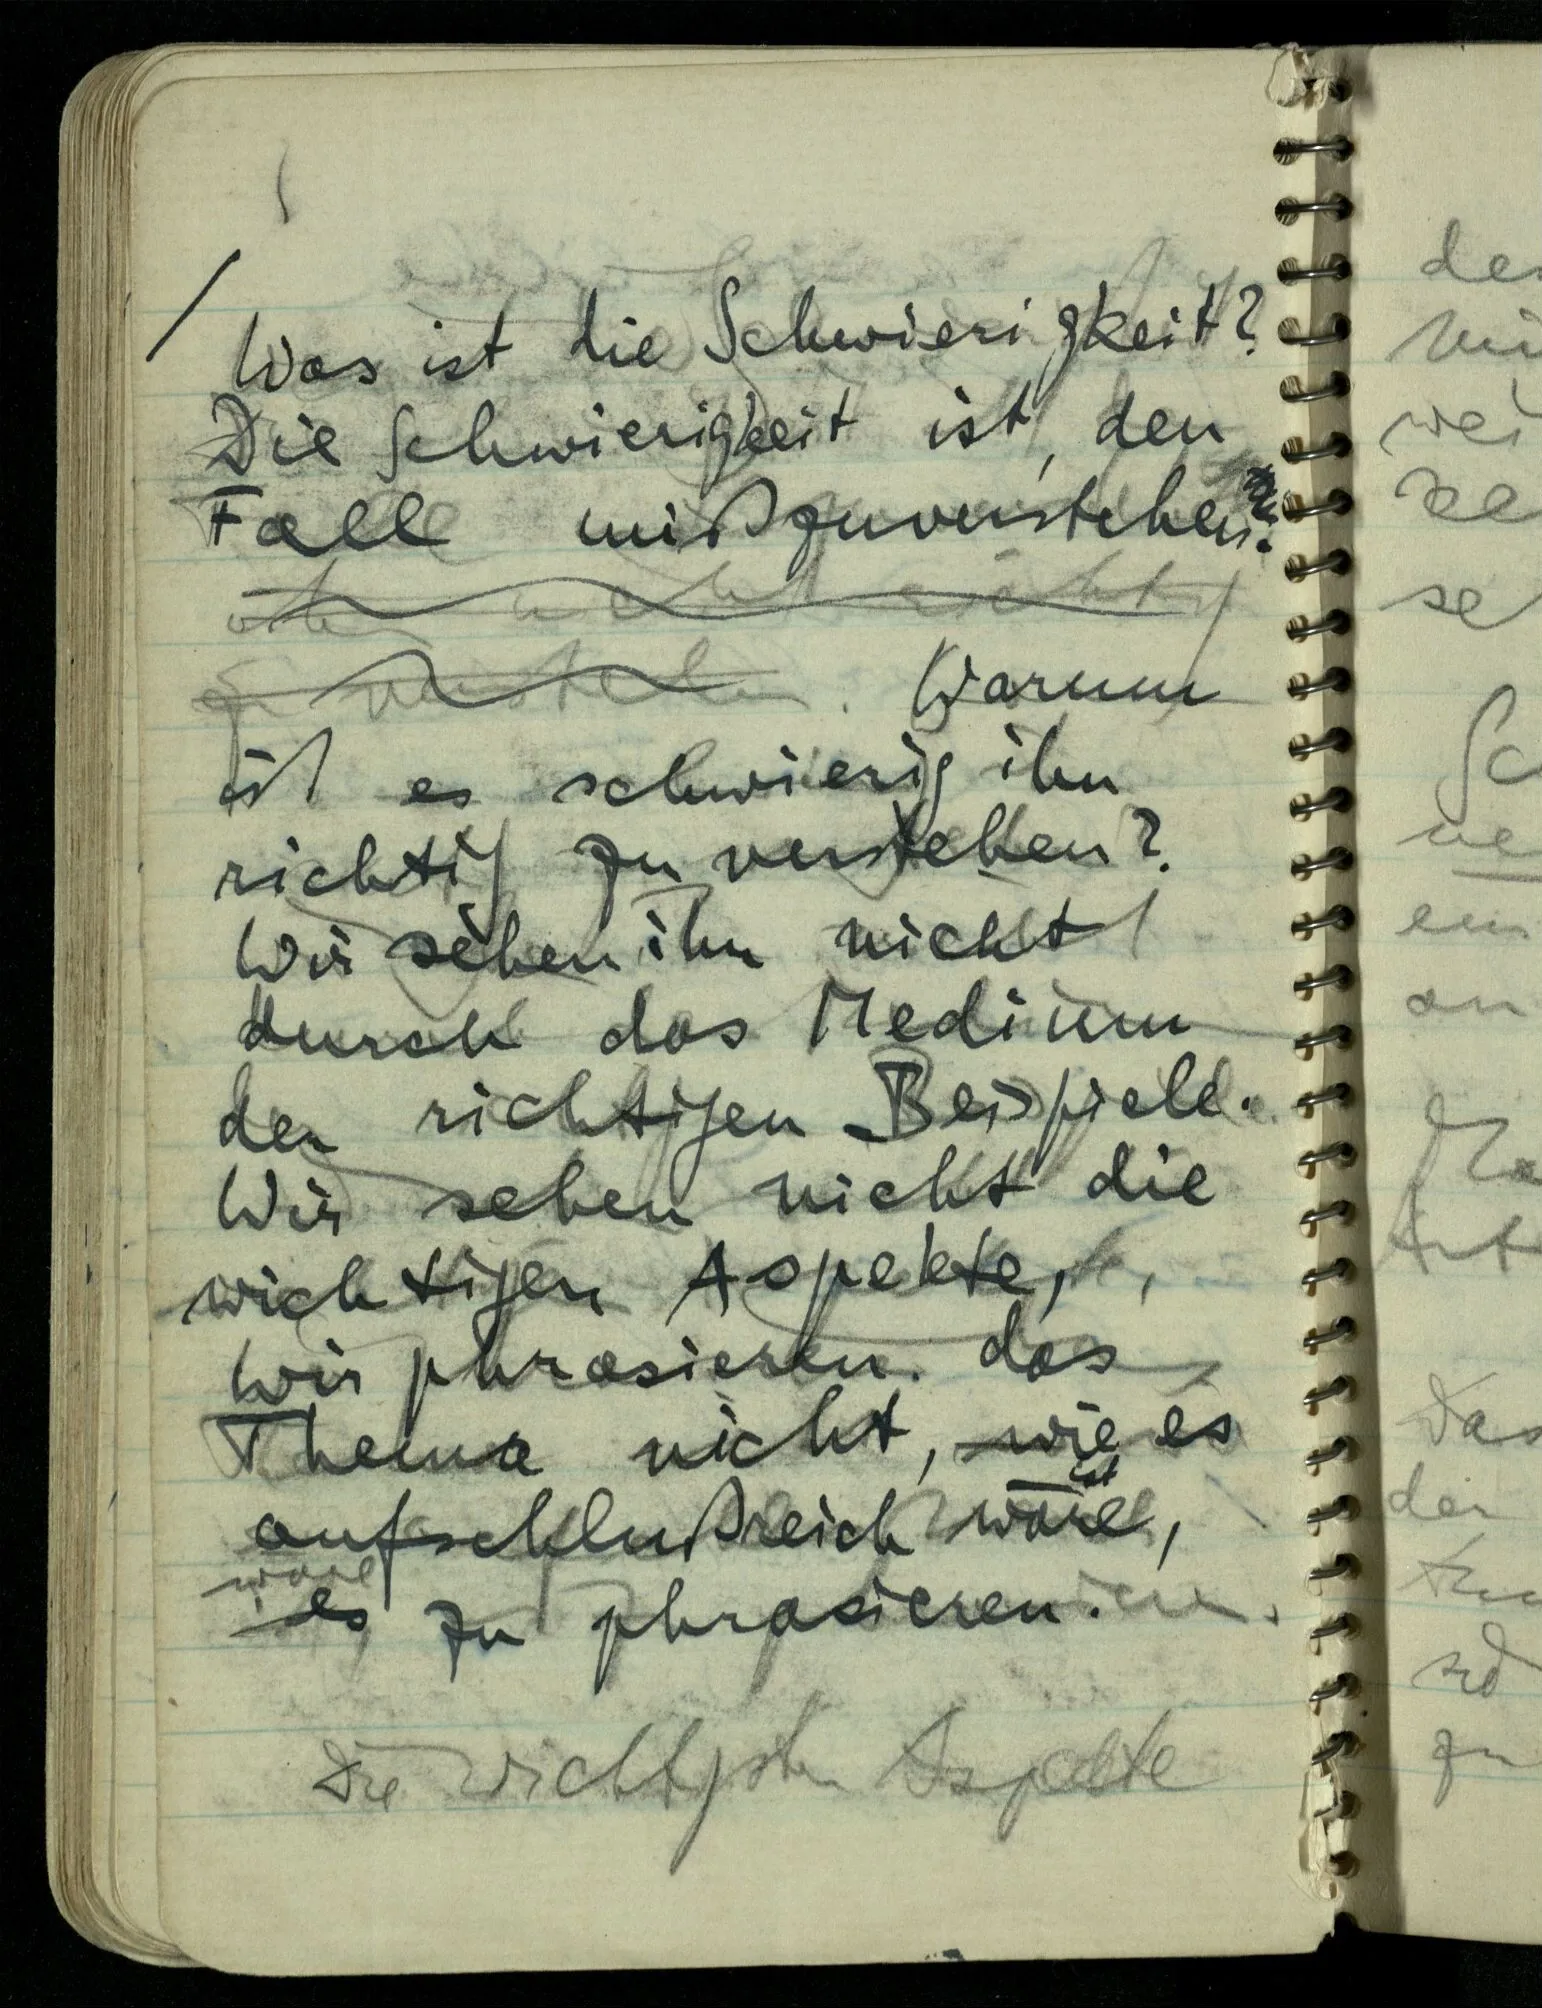 /
Was ist die Schwierigkeit?
Die Schwierigkeit ist, den
Fall mißzuverstehen.
oder nicht richtig
zu verstehen. Warum
ist es schwierig ihn
richtig zu verstehen?
Wir sehen ihn nicht
durch das Medium
der richtigen Beispiele.
Wir sehen nicht die
wichtigen Aspekte,
wir phrasieren das
Thema nicht, wie es
ist
aufschlußreich wäre,
wäre
es zu phrasieren.
Die wichtigsten Aspekte
der
wei
se
Sc
ve
ein
an
Das
der
zu